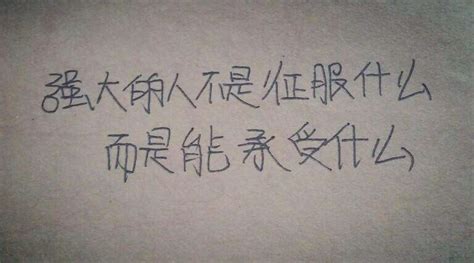 强大的人不是征服什么
而是能承受什么